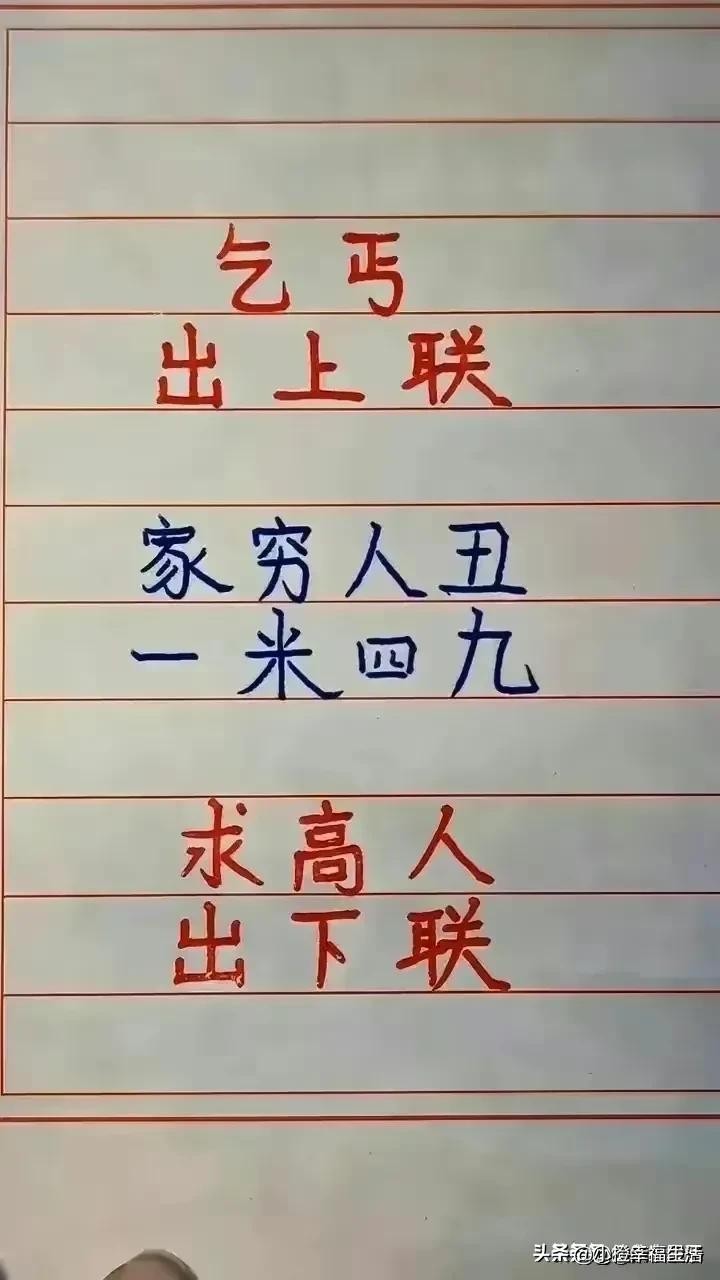 乞丐
出上联
家穷人丑
一米四九
求高人
出下联
头条
@小橙幸福生活